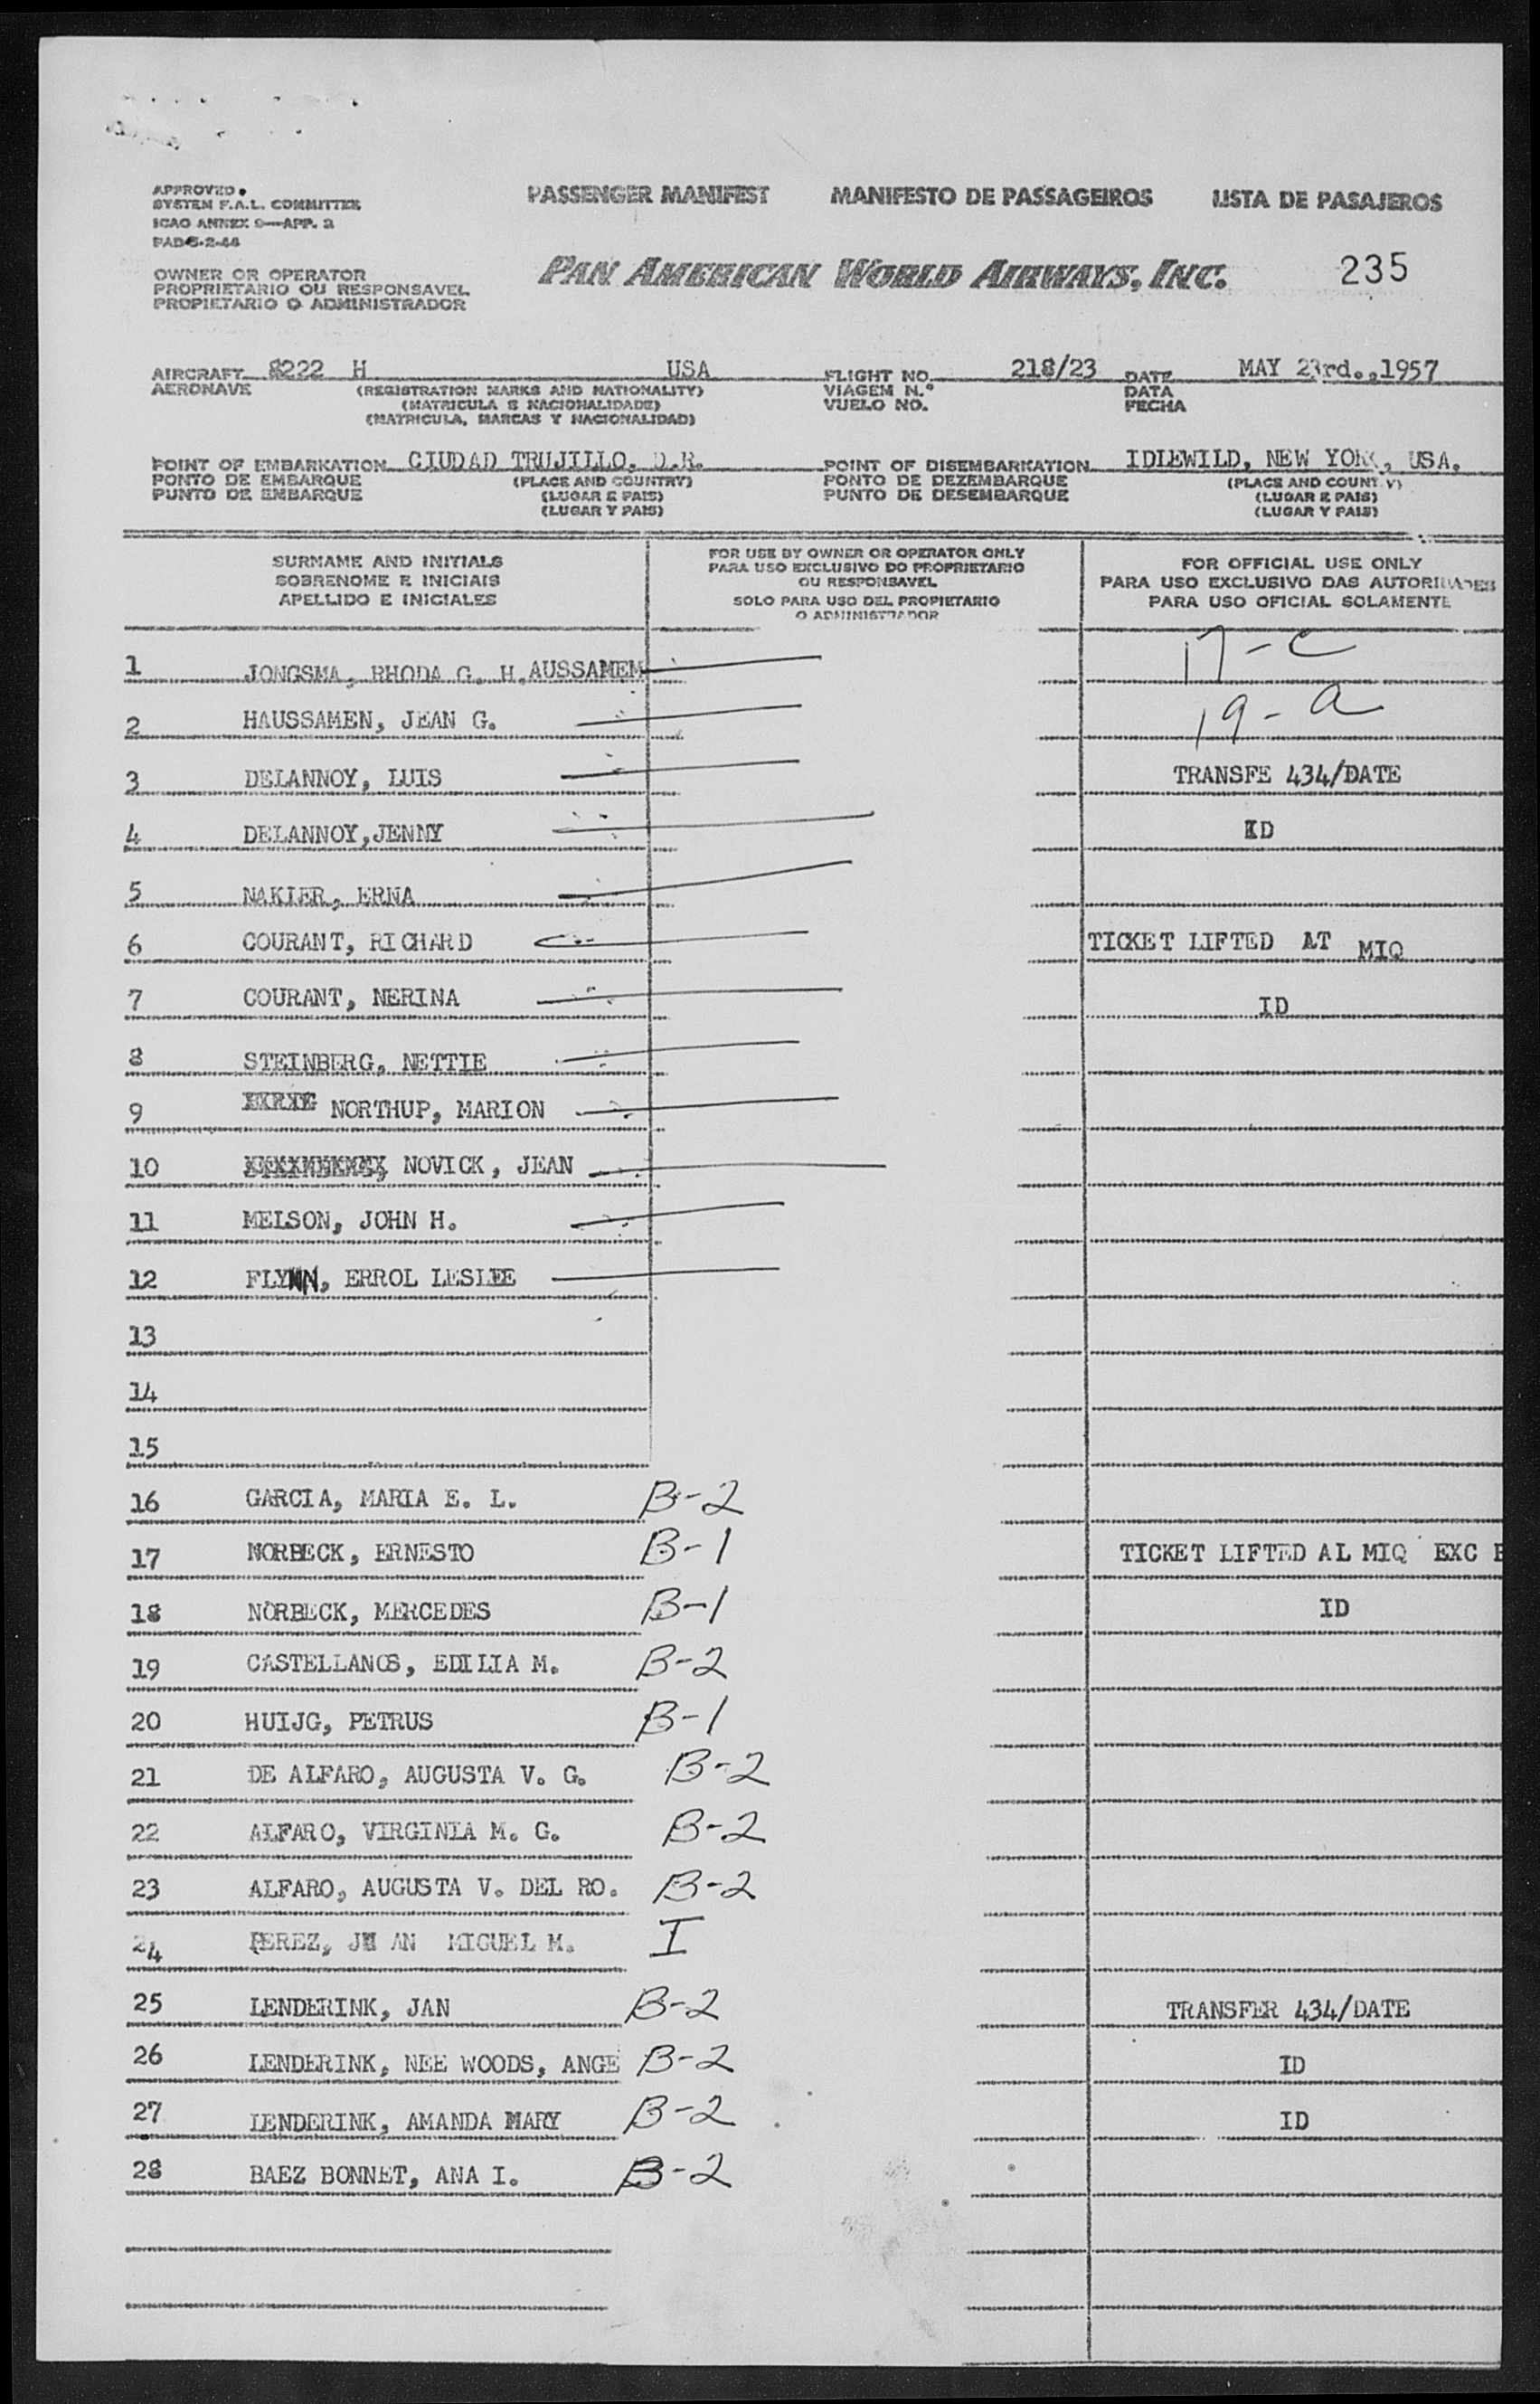 APPROVED.
SYSTEM F.A.L. COMMITTEE
ICAO ANNEX 9—APP. 2
PAD 5-2-44
PASSENGER MANIFEST MANIFESTO DE PASSAGEIROS LISTA DE PASAJEROS
OWNER OR OPERATOR
PROPRIETARIO OU RESPONSAVEL
PROPIETARIO O ADMINISTRADOR
PAN AMERICAN WORLD AIRWAYS, INC. 235
AIRCRAFT 8222 H USA FLIGHT NO. 218/23 DATE MAY 23rd.,1957
AERONAVE (REGISTRATION MARKS AND NATIONALITY) VIAGEM N.° DATA
(MATRICULA E NACIONALIDADE) VUELO NO. FECHA
(MATRICULA, MARCAS Y NACIONALIDAD)
POINT OF EMBARKATION CIUDAD TRUJILLO, D.R. POINT OF DISEMBARKATION IDLEWILD, NEW YORK, USA.
PONTO DE EMBARQUE (PLACE AND COUNTRY) PONTO DE DEZEMBARQUE (PLACE AND COUNT Y)
PUNTO DE EMBARQUE (LUGAR E PAIS) PUNTO DE DESEMBARQUE (LUGAR E PAIS)
(LUGAR Y PAIS) (LUGAR Y PAIS)
SURNAME AND INITIALS
SOBRENOME E INICIAIS
APELLIDO E INICIALES
FOR USE BY OWNER OR OPERATOR ONLY
PARA USO EXCLUSIVO DO PROPRIETARIO
OU RESPONSAVEL
SOLO PARA USO DEL PROPIETARIO
O ADMINISTRADOR
FOR OFFICIAL USE ONLY
PARA USO EXCLUSIVO DAS AUTORIDADES
PARA USO OFICIAL SOLAMENTE
1 JONGSMA, RHODA G. H.AUSSAMEN 17-C
2 HAUSSAMEN, JEAN G. 19-a
3 DELANNOY, LUIS TRANSFE 434/DATE
4 DELANNOY,JENNY ID
5 NAKIER, ERNA
6 COURANT, RICHARD TICKET LIFTED AT MIQ
7 COURANT, NERINA ID
8 STEINBERG, NETTIE
9 NORTHUP, MARION
10 NOVICK, JEAN
11 MELSON, JOHN H.
12 FLYNN, ERROL LESLEE
13
14
15
16 GARCIA, MARIA E. L. B-2
17 NORBECK, ERNESTO B-1 TICKET LIFTED AL MIQ EXC
18 NORBECK, MERCEDES B-1 ID
19 CASTELLANOS, EDILIA M. B-2
20 HUIJG, PETRUS B-1
21 DE ALFARO, AUGUSTA V. G. B-2
22 ALFARO, VIRGINIA M. G. B-2
23 ALFARO, AUGUSTA V. DEL RO. B-2
24 PEREZ, JU AN MIGUEL M. I
25 LENDERINK, JAN B-2 TRANSFER 434/DATE
26 LENDERINK, NEE WOODS, ANGE B-2 ID
27 LENDERINK, AMANDA MARY B-2 ID
28 BAEZ BONNET, ANA I. B-2